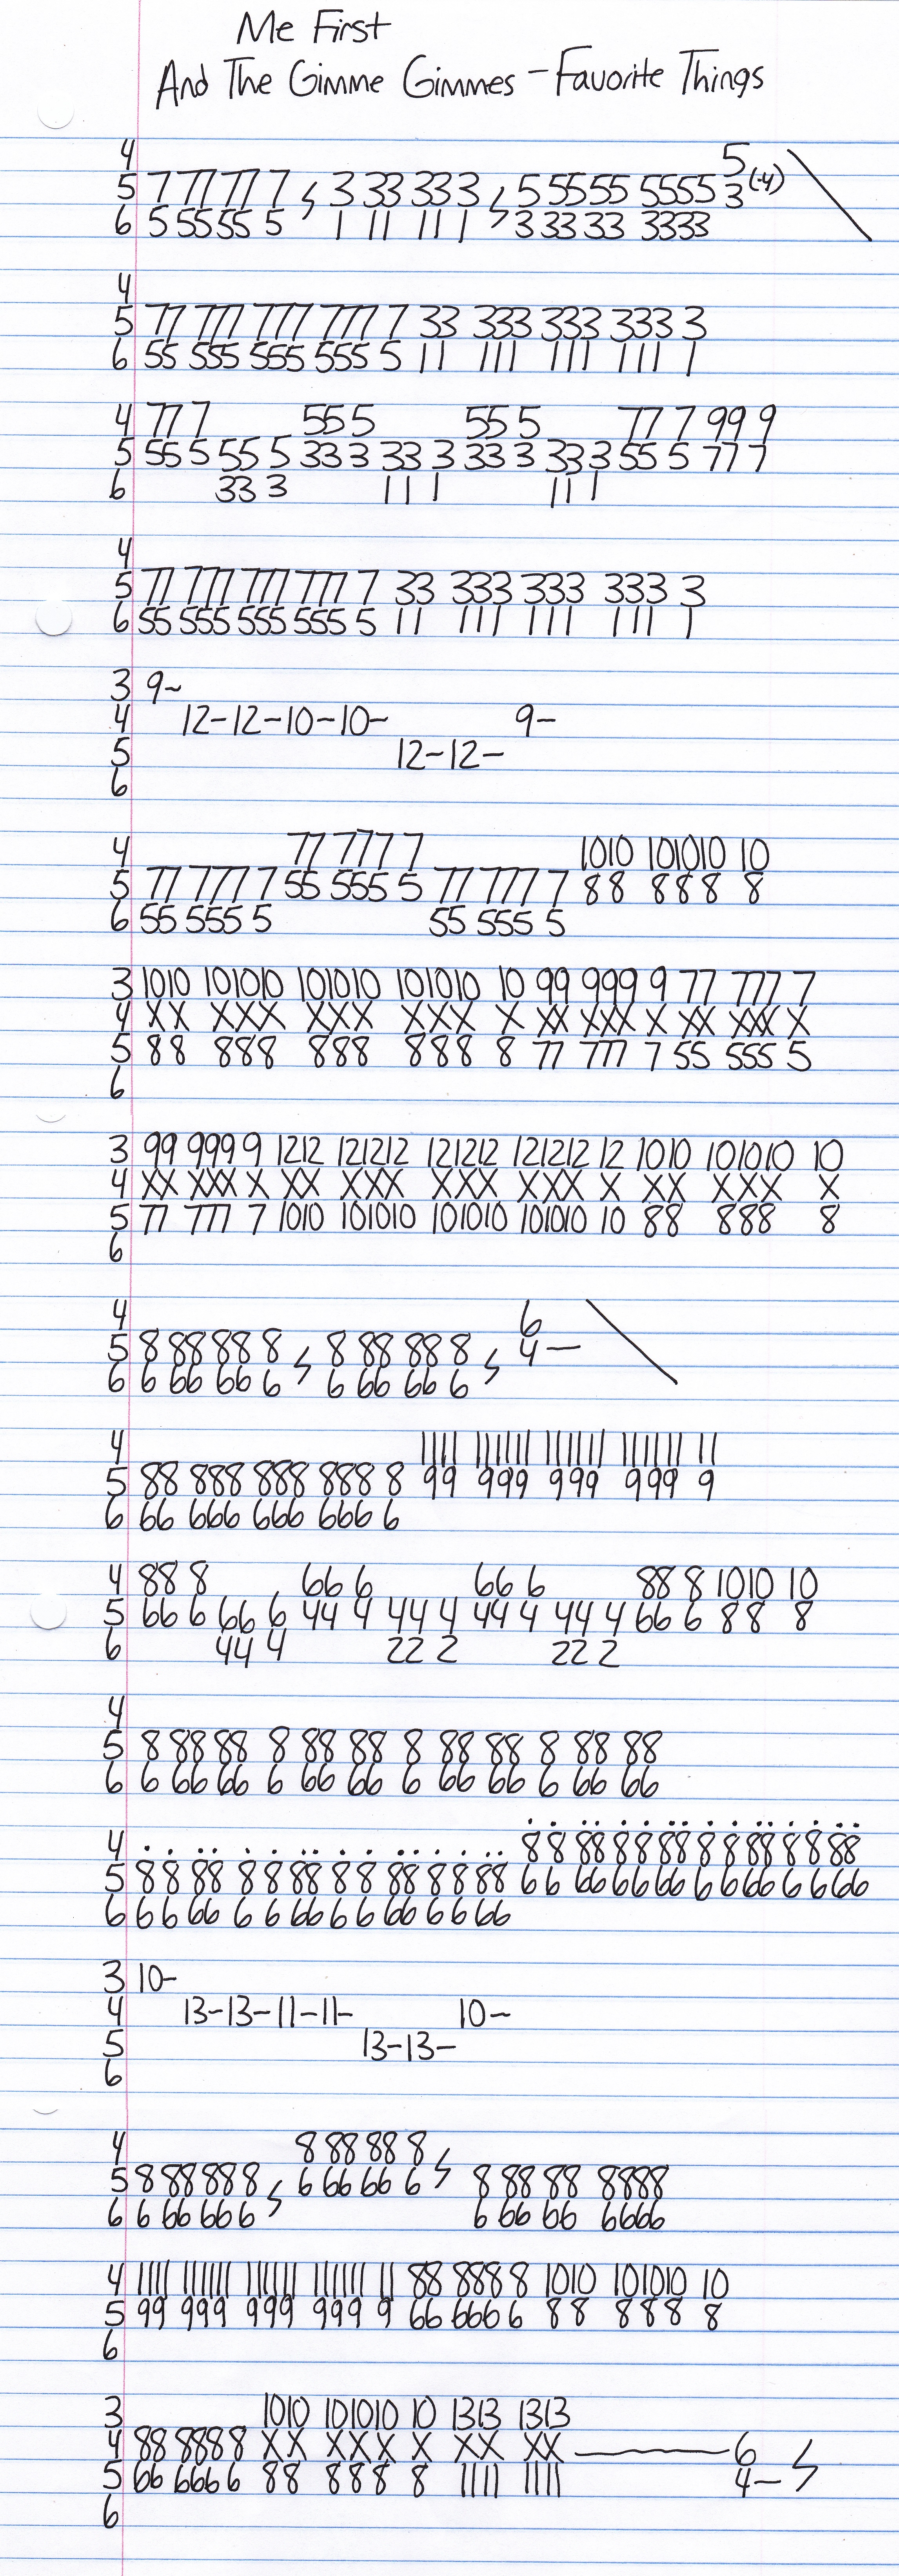 Me First
And The Gimme Gimmes - Favorite Things
4 5
5 7 77 77 7 3 33 33 3 5 55 55 5555 3(-4)
6 5 55 55 5 1 11 11 1 3 33 33 3333
4
5 77 777 777 777 7 33 333 333 333 3
6 55 555 555 555 5 11 111 111 111 1
4 77 7 55 5 55 5 77 7 99 9
5 55 5 55 5 33 3 33 3 33 3 33 3 55 5 77 7
6 33 3 11 1 11 1
4
5 77 777 777 777 7 33 333 333 333 3
6 55 555 555 555 5 11 111 111 111 1
3 9~
4 12-12-10-10- 9-
5 12-12-
6
4 77 777 7 1010 101010 10
5 77 777 7 55 555 5 77 777 7 88 888 8
6 55 555 5 55 555 5
3 1010 101010 101010 101010 10 99 999 9 77 777 7
4 XX XXX XXX XXX X XX XXX X XX XXX X
5 88 888 888 888 8 77 777 7 55 555 5
6
3 99 999 9 1212 121212 121212 121212 12 1010 101010 10
4 XX XXX X XX XXX XXX XXX X XX XXX X
5 77 777 7 1010 101010 101010 101010 10 88 888 8
6
4 6
5 8 88 88 8 8 88 88 8 4-
6 6 66 66 6 6 66 66 6
4 1111 111111 111111 111111 11
5 88 888 888 888 8 99 999 999 999 9
6 66 666 666 666 6
4 88 8 66 6 66 6 88 8 1010 10
5 66 6 66 6 44 4 44 4 44 4 44 4 66 6 88 8
6 44 4 22 2 22 2
4
5 8 88 88 8 88 88 8 88 88 8 88 88
6 6 66 66 6 66 66 6 66 66 6 66 66
4 8 8 88 8 8 88 8 8 88 8 8 88
5 8 8 88 8 8 88 8 8 88 8 8 88 6 6 66 6 6 66 6 6 66 6 6 66
6 6 6 66 6 6 66 6 6 66 6 6 66
3 10-
4 13-13-11-11- 10-
5 13-13-
6
4 8 88 88 8
5 8 88 88 8 6 66 66 6 8 88 88 8888
6 6 66 66 6 6 66 66 6666
4 1111 111111 111111 111111 11 88 888 8 1010 101010 10
5 99 999 999 999 9 66 666 6 88 888 8
6
3 1010 101010 10 1313 1313
4 88 888 8 XX XXX X XX XX 6
5 66 666 6 88 888 8 1111 1111 4-
6